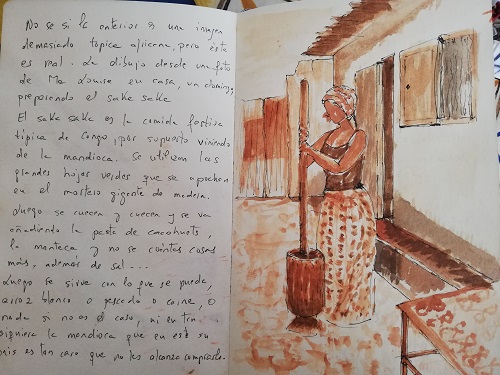 No se si la anterior es una imagen
demasiado tópica africana, pero ésta
es real. La dibujo desde una foto
de Ma Louise en casa, un domingo,
preparando el sake sake
El sake sake es la comida festiva
típica de Congo, por supuesto viniendo
de la mandioca. Se utilizan las
grandes hojas verdes que se machacan
en el mortero gigante de madera.
Luego se cuecen y cuecen y se va
añadiendo la pasta de cacahuets,
la manteca y no se cuántas cosas
más, además de sal...
Luego se sirve con lo que se pueda,
arroz blanco o pescado o carne, o
nada si no es el caso, ni en fin
siquiera la mandioca que en este su
país es tan caro que no les alcanza comprarla.